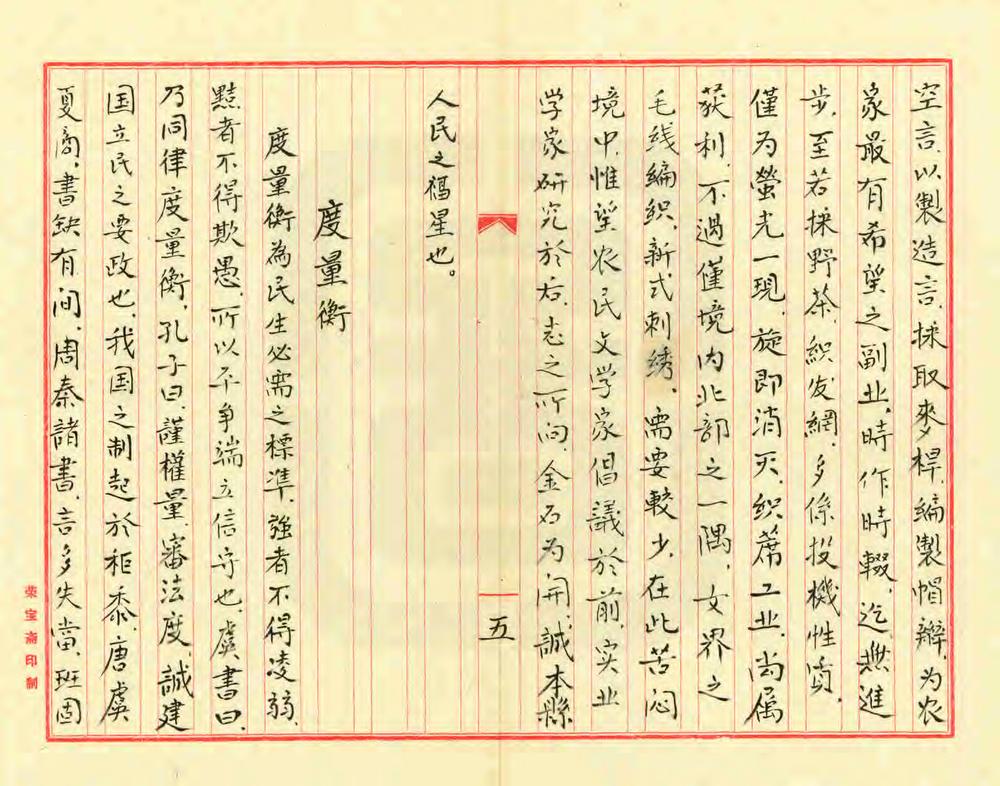 空言，以製造言，採取麥桿，編製帽辮，为农
家最有希望之副业，時作時輟，迄無進
步，至若採野茶，織发網，多係投機性質，
僅为螢光一現，旋即消灭，织蓆工业，尚属
获利，不過僅境内北部之一隅，女界之
毛线编织，新式刺绣，需要較少，在此苦闷
境中，惟望农民文学家倡議於前，实业
学家研究於后，志之所向，金石为開，誠本縣
人民之福星也。
度量衡
度量衡為民生必需之標準，強者不得凌弱，
黠者不得欺愚，所以平争端立信守也，虞書曰，
乃同律度量衡，孔子曰，謹權量，審法度，誠建
国立民之要政也，我国之制起於秬黍，唐虞
夏商，書缺有间，周秦諸書，言多失當，班固
五
荣宝斋印制